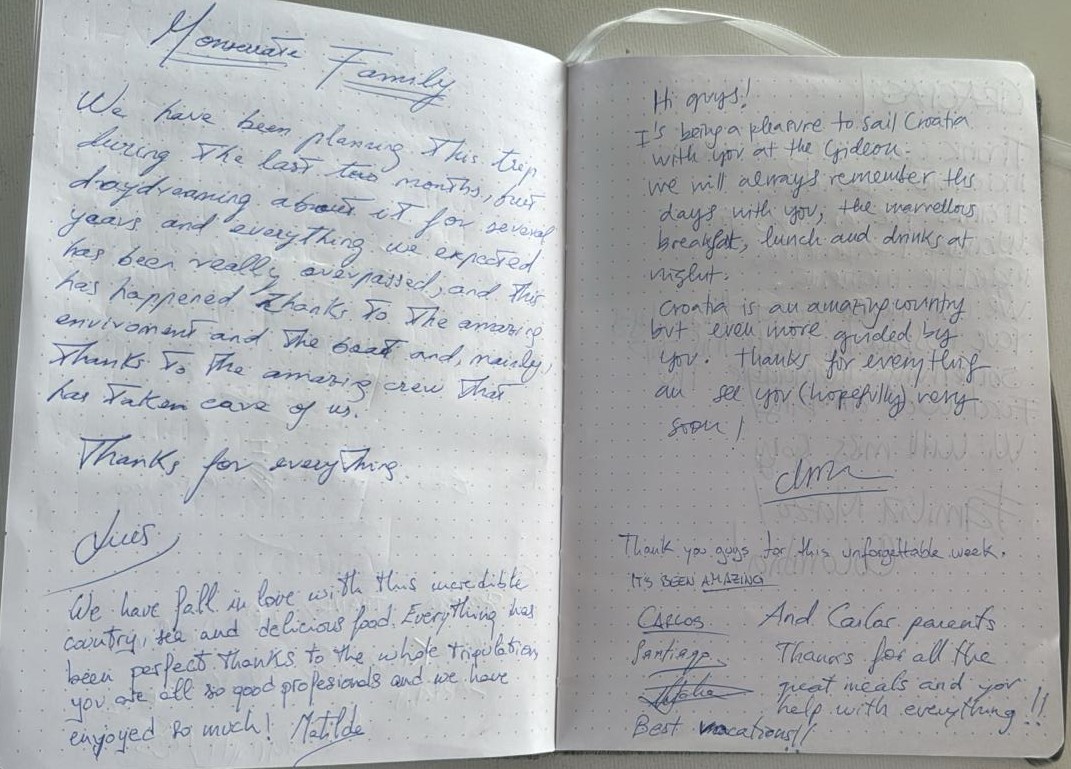 Monserrate Family
We have been planning this trip
during the last two months, but
daydreaming about it for several
years and everything we expected
has been really overpassed, and this
has happened thanks to the amazing
enviroment and the boat and, mainly,
thanks to the amazing crew that
has taken care of us.
Thanks for everything.
Luis
We have fall in love with this incredible
country, sea and delicious food. Everything has
been perfect thanks to the whole tripulation,
you are all so good profesionals and we have
enjoyed so much! Matilde
Hi guys!
I's being a pleasure to sail Croatia
with you at the Gideon.
We will always remember this
days with you, the marvellous
breakfast, lunch and drinks at
night.
Croatia is an amazing country
but even more guided by
you. thanks for everything
an see you (hopefully) very
soon!
Thank you guys for this unforgettable week.
IT'S BEEN AMAZING
CARLOS
Santiago
And Carlos parents
Thanks for all the
great meals and your
help with everything!!
Best vacations!!